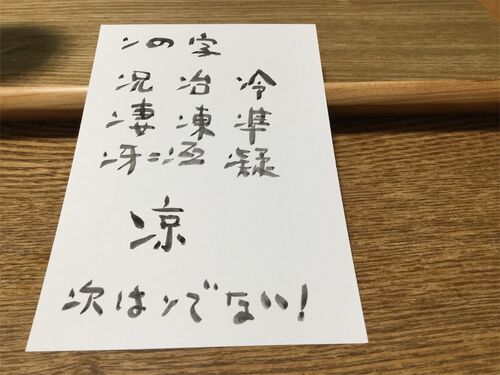 冫の字
况 冶 冷
凄 凍 準
冴=冱 凝
凉
次は冫でない!